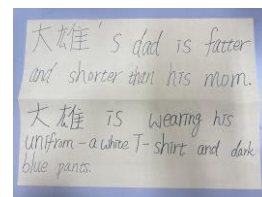 大雄's dad is fatter
and shorter than his mom.
大雄 is wearing his
unifrom - a white T-shirt and dark
blue pants.